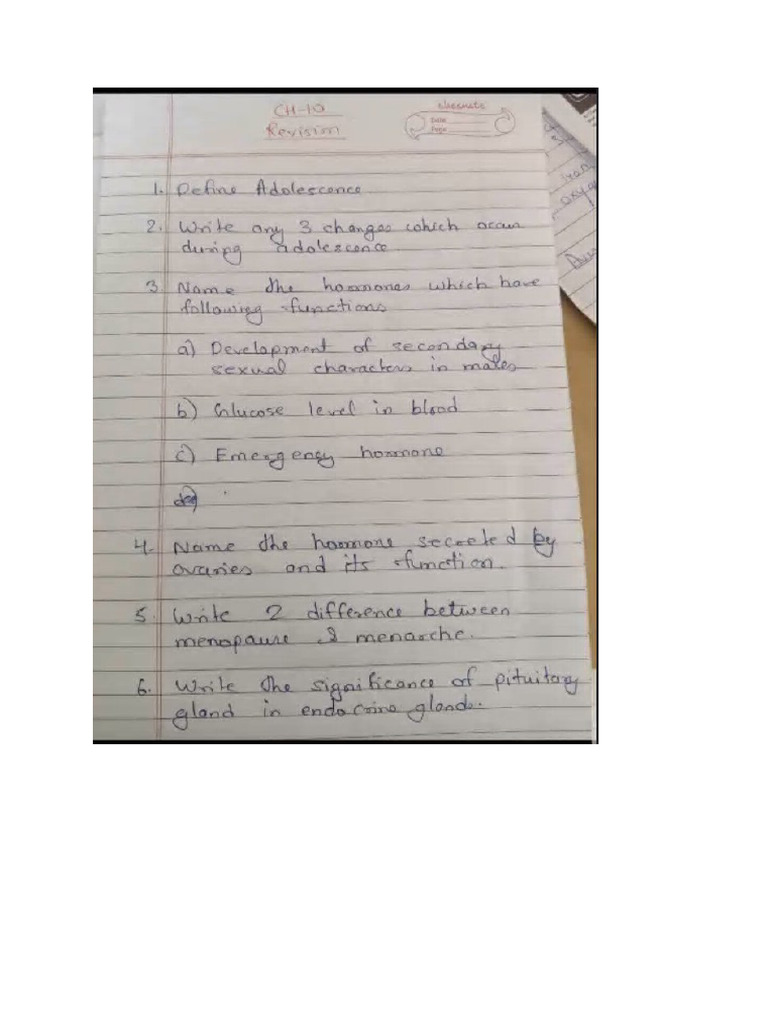 CH-10
Revision
Date
Page
1. Define Adolescence
2. Write any 3 changes which occur
during adolescence
3. Name the hormones which have
following functions
a) Development of secondary
sexual characters in males
b) Glucose level in blood
c) Emergency hormone
4. Name the hormone secreted by
ovaries and its function.
5. Write 2 difference between
menopause & menarche.
6. Write the significance of pituitary
gland in endocrine glands.